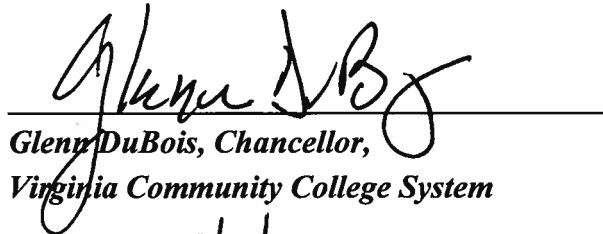 Glenn DuBois
Glenn DuBois, Chancellor,
Virginia Community College System